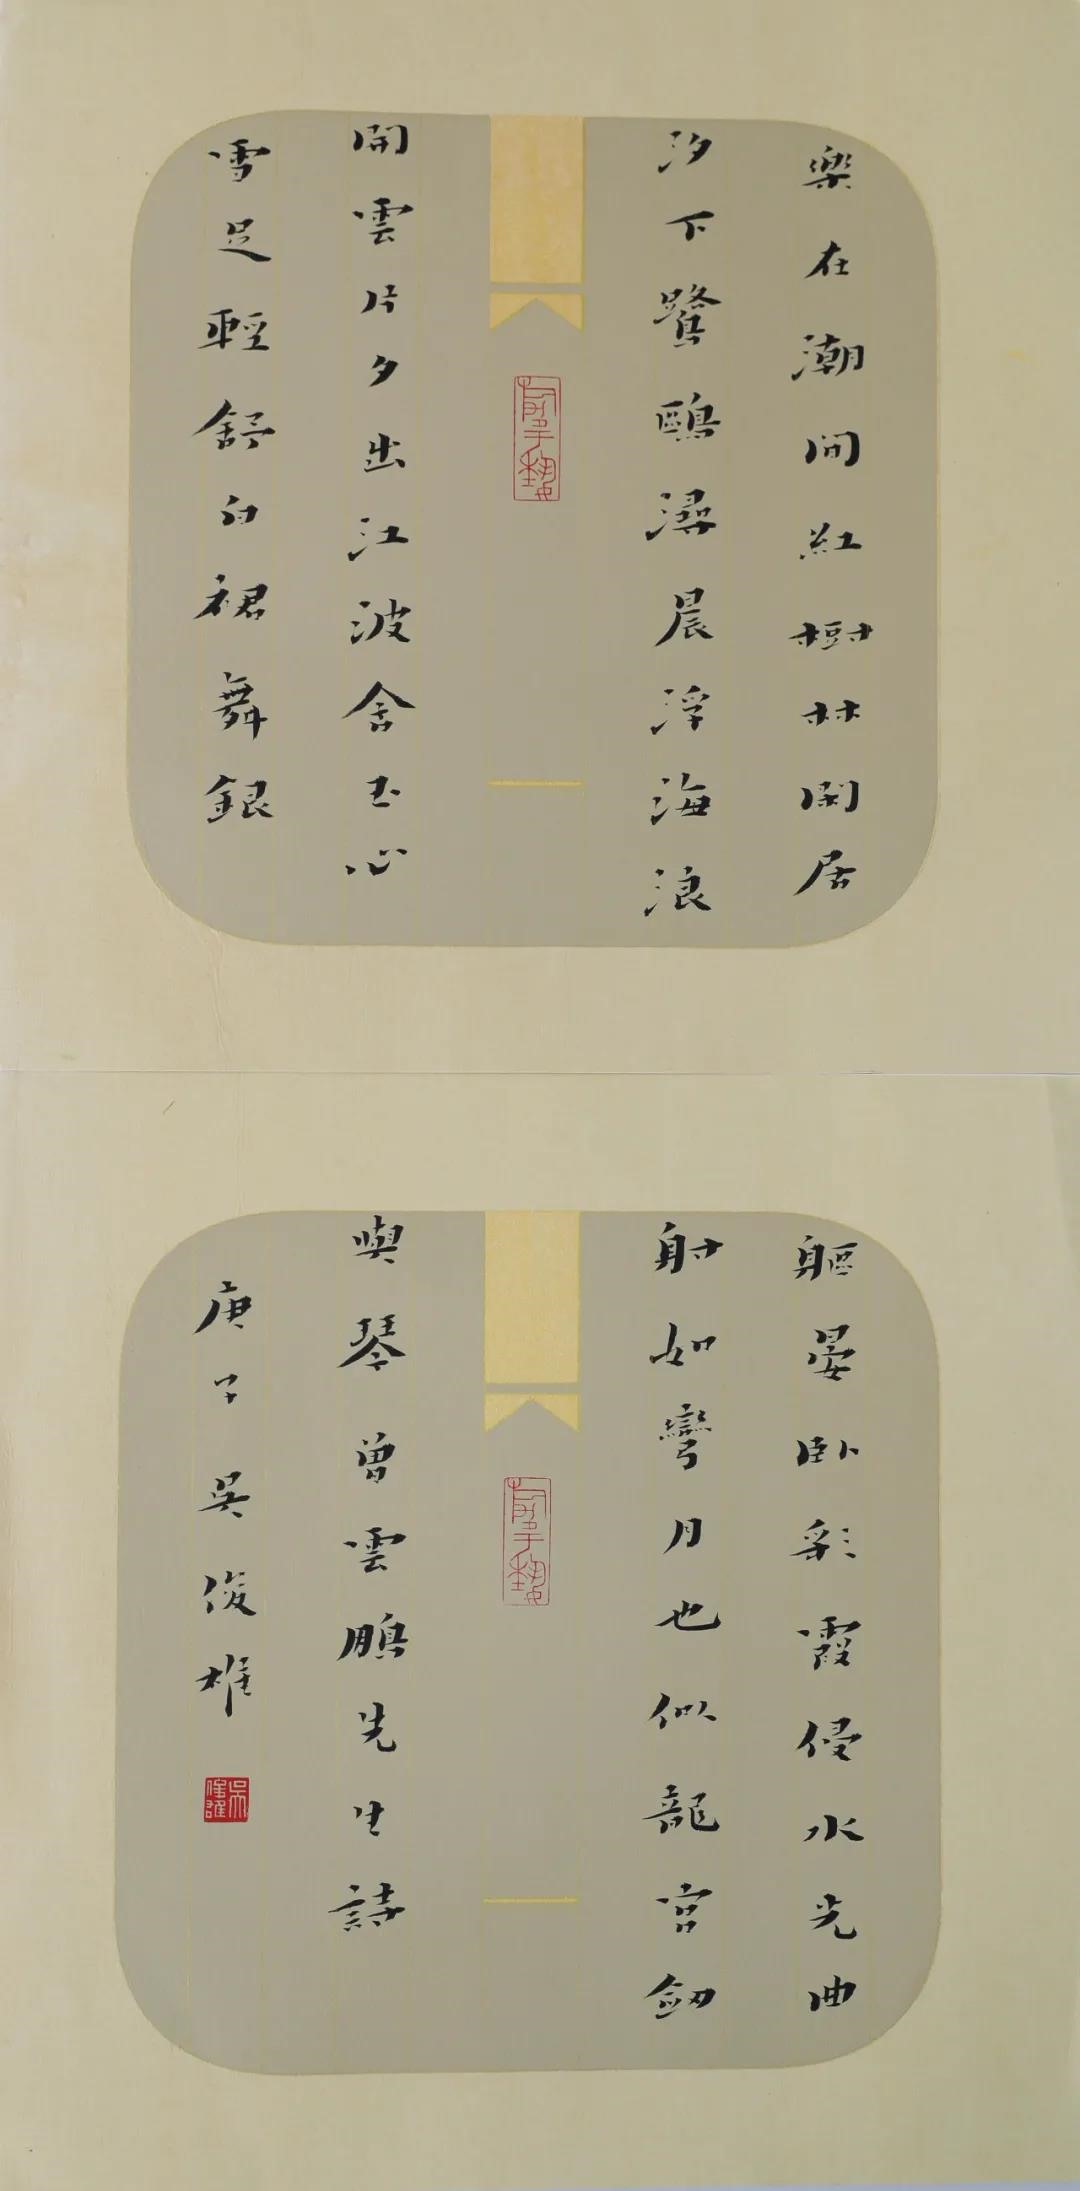 樂在潮間紅樹林閑居
汐下鷺鷗潯晨浮海浪
開雲片夕出江波含玉心
雪足輕舒白裙舞銀
軀晏卧彩霞侵水光曲
射如彎月也似龍宮劒
與琴曾雲鵬先生詩
庚子吳俊雄